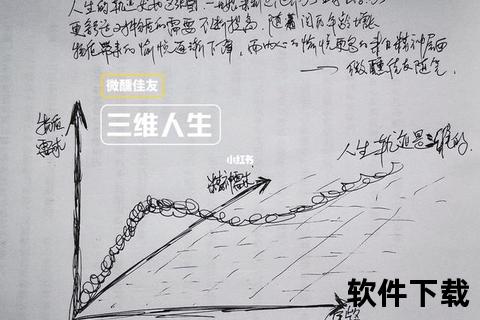 人生的轨迹
更舒适 对物质的需要不断提高 随着阅历年龄增
物质带来的愉悦逐渐下降,而内心的愉悦更多的来自精神层面
——微醺佳友随笔.
微醺佳友
三维人生
物质
需求
小红书
精神需求
人生轨迹是三维的.
年龄
软件下载